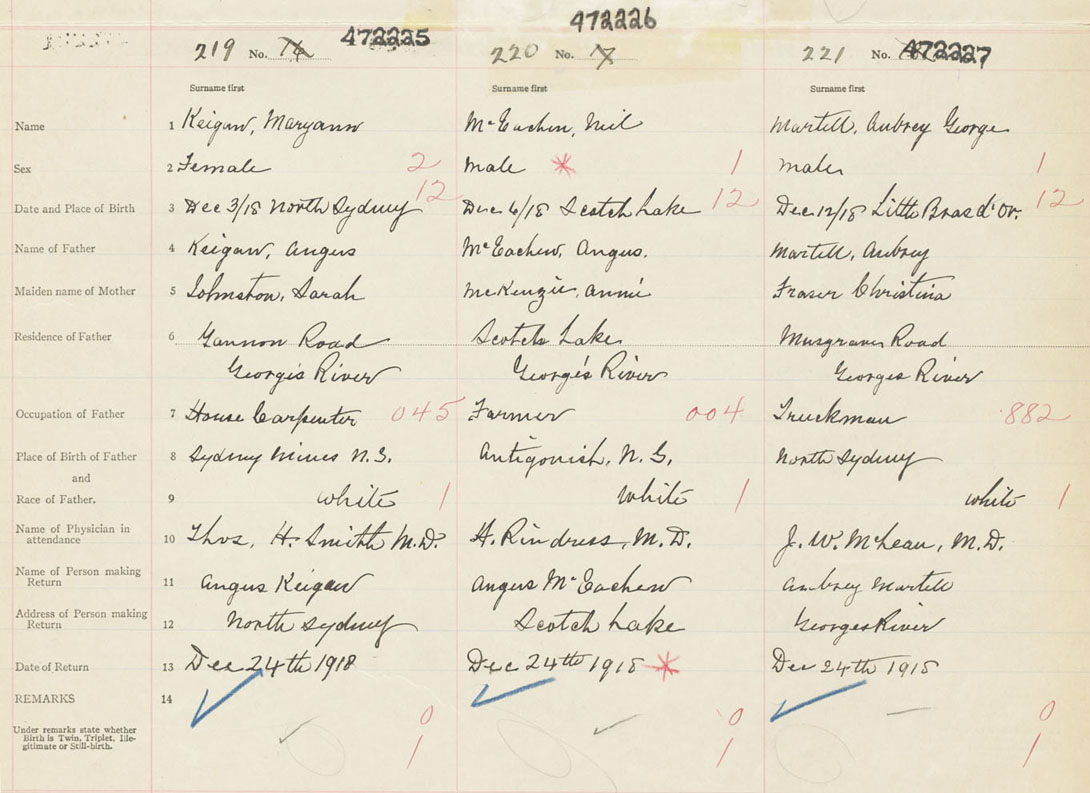 472225 472226 472227
219 No. 220 No. 221 No.
Surname first Surname first Surname first
Name 1 Keigan, Maryann McEachen, Neil Martell, Aubrey George
Sex 2 Female 2 Male * 1 male 1
Date and Place of Birth 3 Dec 3/18 North Sydney 12 Dec 6/18 Scotch Lake 12 Dec 12/18 Little Bras d'or. 12
Name of Father 4 Keigan, Angus McEachen, Angus. Martell, Aubrey
Maiden name of Mother 5 Johnston, Sarah McKenzie, Annie Fraser Christina
Residence of Father 6 Gannon Road Scotch Lake Musgraves Road
Georges River George's River Georges River
Occupation of Father 7 House Carpenter 045 Farmer 004 Truckman 882
Place of Birth of Father 8 Sydney Mines N.S. Antigonish, N.S. North Sydney
and
Race of Father. 9 white 1 White 1 white 1
Name of Physician in
attendance 10 Thos. H. Smith M.D. H. Rindress, M.D. J. W. McLean, M.D.
Name of Person making
Return 11 Angus Keigan Angus McEachen Aubrey Martell
Address of Person making
Return 12 North Sydney Scotch Lake Georges River
Date of Return 13 Dec 24th 1918 Dec 24th 1918 * Dec 24th 1918
REMARKS 14
0 0 0
Under remarks state whether
Birth is Twin, Triplet, Ille-
gitimate or Still-birth.
1 1 1